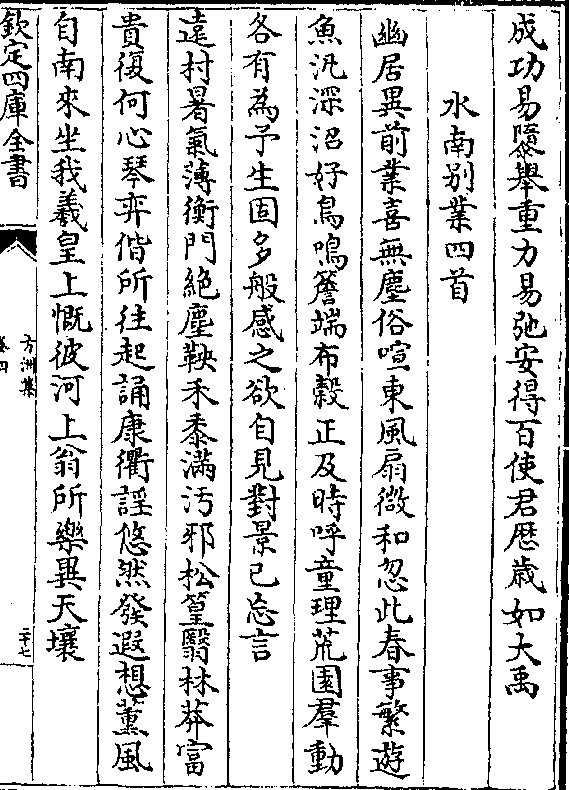 成功易隳舉重力易弛安得百使君歴歳如大禹
水南别業四首
幽居異前業喜無塵俗喧東風扇微和忽此春事繁遊
魚汎深沼好鳥鳴簷端布糓正及時呼童理荒園羣動
各有為予生固多般感之欲自見對景已忘言
遠村暑氣薄衡門絶塵鞅禾黍滿汚邪松篁翳林莽富
貴復何心琴弈偕所往起誦康衢謡悠然發遐想薫風
自南來坐我羲皇上慨彼河上翁所樂異天壤
欽定四庫全書
方洲集
卷四
二十七